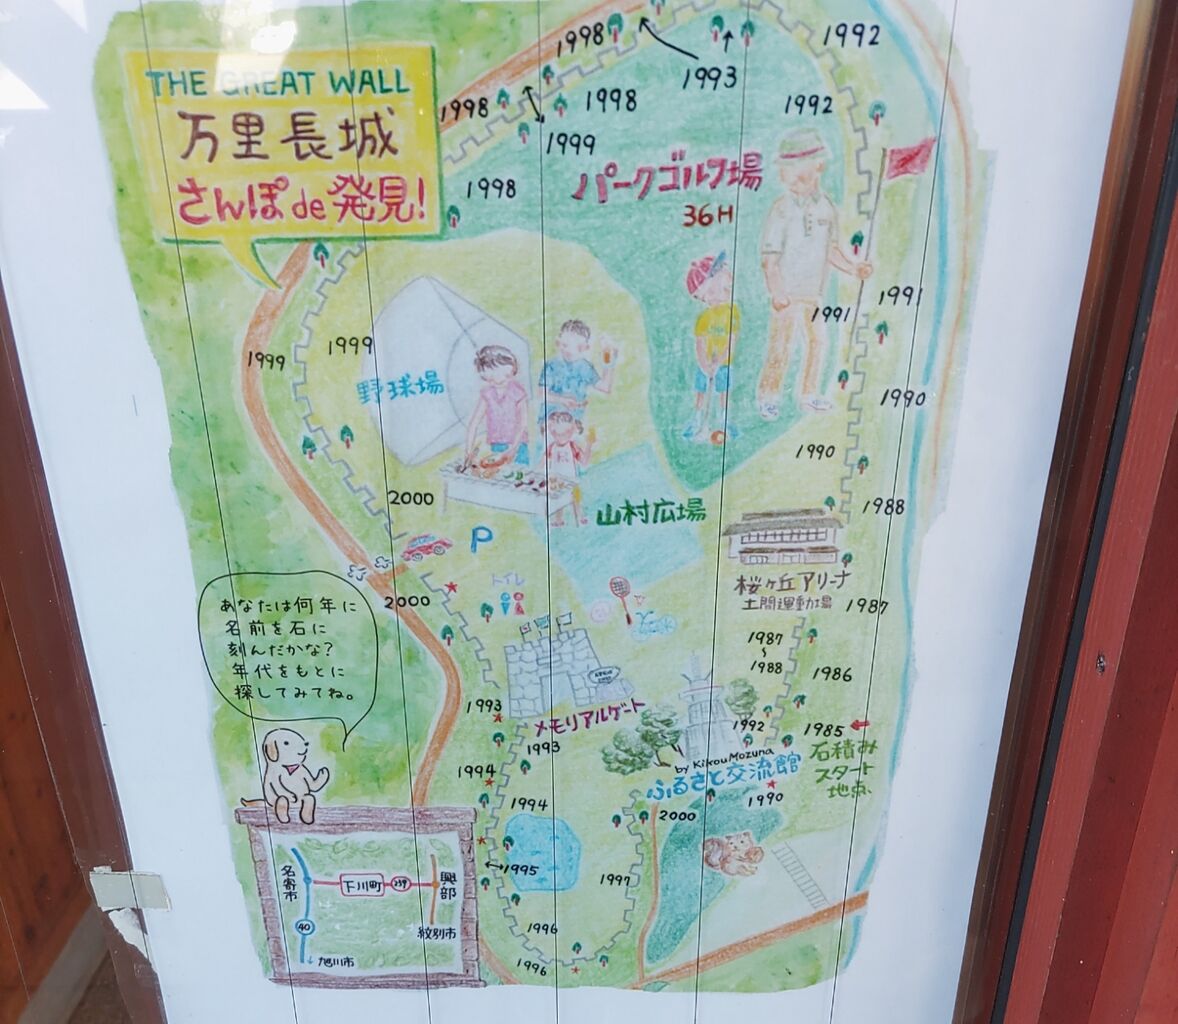 THE GREAT WALL
万里長城
さんぽde発見!
1998
1993
1992
1998
1998
1992
1999
1998
パークゴルフ場
36H
1991
1991
1999
1999
野球場
1990
1990
2000
山村広場
1988
P
桜ヶ丘アリーナ
土間運動場
トイレ
2000
1987
あなたは何年に
名前を石に
刻んだかな?
年代をもとに
探してみてね。
1987
〜
1988
1986
1993
メモリアルゲート
1992
1985
石積み
スタート
地点
1993
by Kikou Mozuna
ふるさと交流館
1994
1994
1990
2000
1995
1997
1996
1996
名寄市
下川町
239
興部
40
紋別市
旭川市